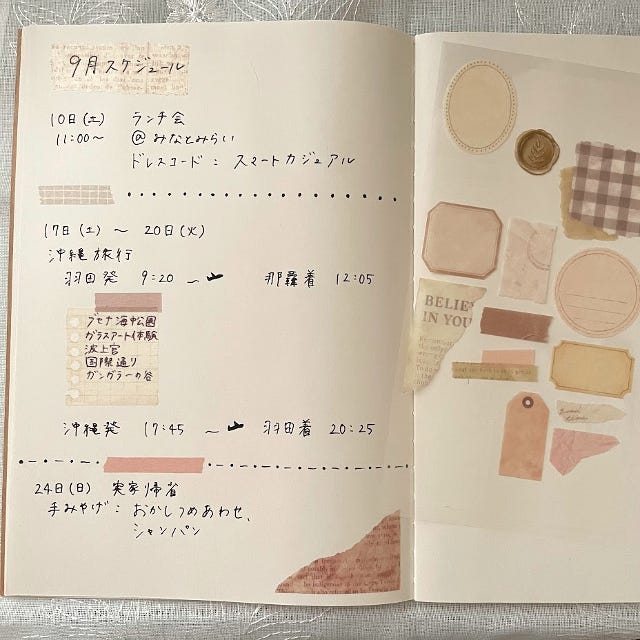 9月スケジュール
10日(土) ランチ会
11:00〜 @みなとみらい
ドレスコード: スマートカジュアル
17日(土) 〜 20日(火)
沖縄旅行
羽田発 9:20 〜 那覇着 12:05
ブセナ海中公園
ガラスアート体験
波上宮
国際通り
ガンガラーの谷
沖縄発 17:45 〜 羽田着 20:25
24日(日) 実家帰省
手みやげ: おかしつめあわせ、
シャンパン
BELIEV
IN YOU